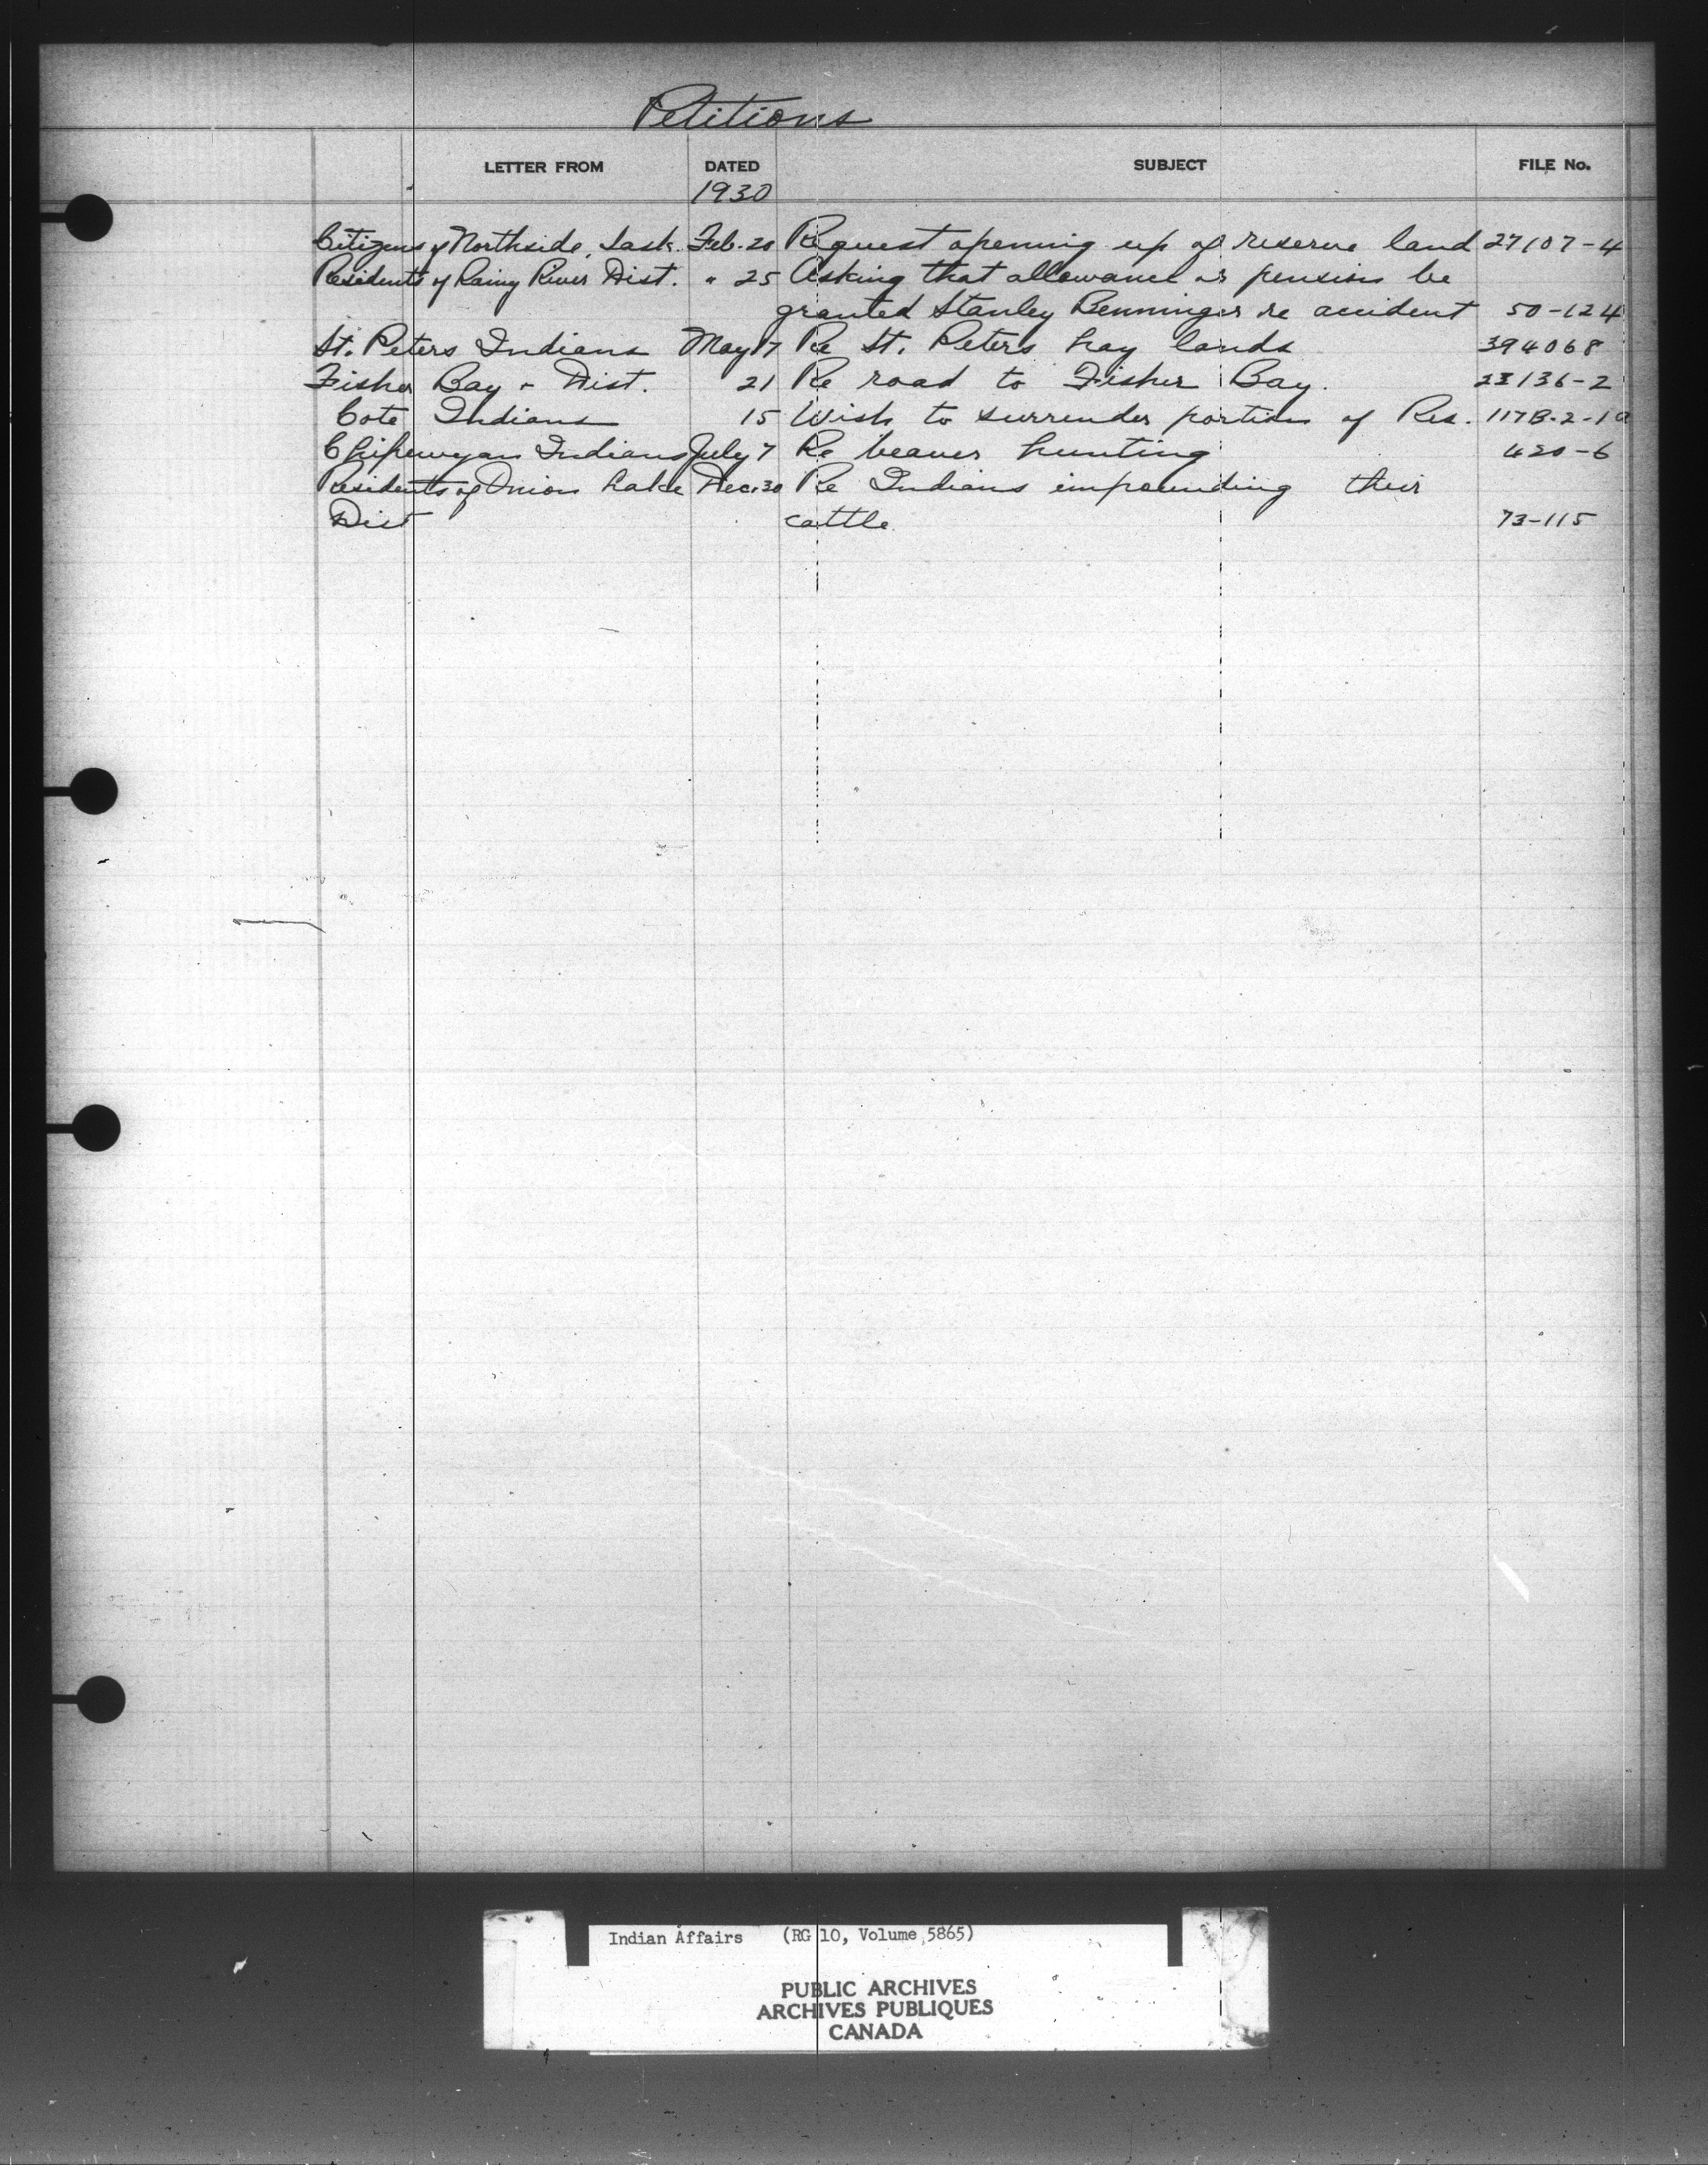 Petitions
LETTER FROM DATED SUBJECT FILE No.
1930
Citizens of Northside, Sask. Feb. 20 Request openning up of reserve land 27107-4
Residents of Rainy River Dist. " 25 Asking that allowance or pension be
granted Stanley Benninger re accident 50-124
St. Peters Indians May 17 Re St. Peters hay lands 394068
Fisher Bay & Dist. 21 Re road to Fisher Bay. 23136-2
Cote Indians 15 Wish to surrender portion of Res. 117B-2-1a
Chipewyan Indians July 7 Re beaver hunting 420-6
Residents of Onion Lake Dec. 30 Re Indians impounding their
Dist cattle. 73-115
Indian Affairs (RG 10, Volume 5865)
PUBLIC ARCHIVES
ARCHIVES PUBLIQUES
CANADA